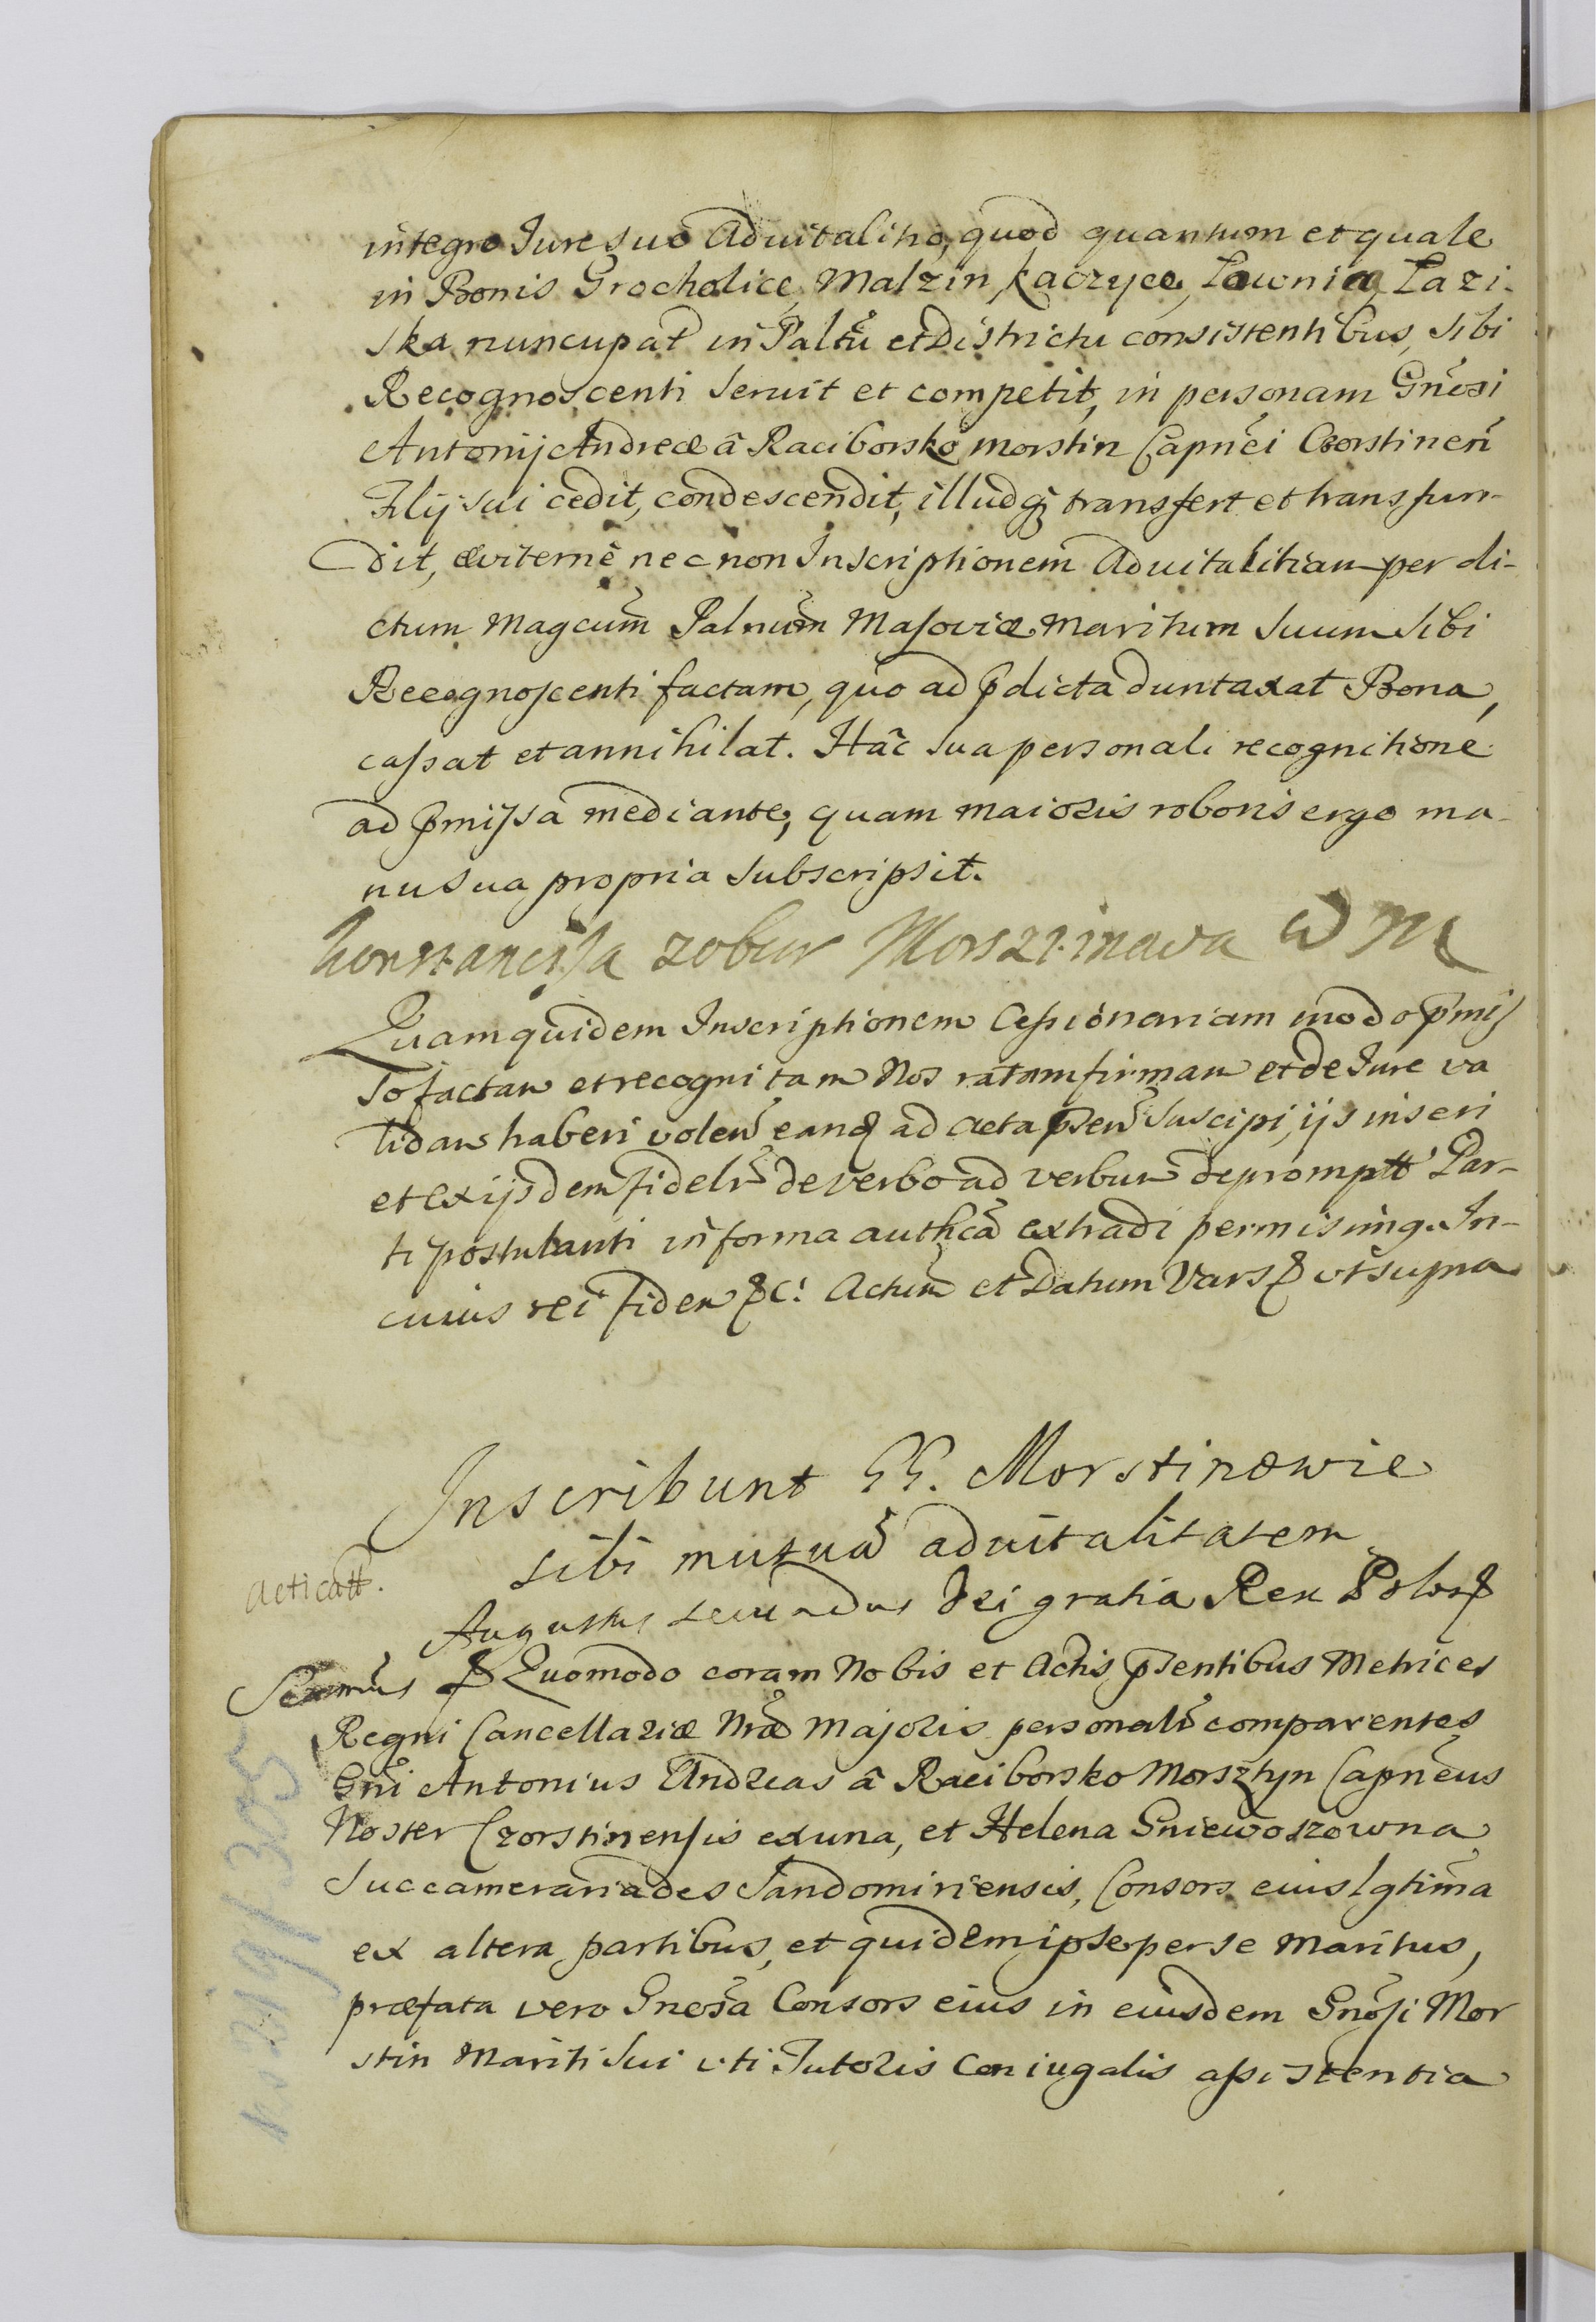 integro Iure suo Advitalitio, quod quantum et quale
in Bonis Grocholice, Malzin, Kaczyce, Lawnia, Lazi-
ska nuncupat in Paltũ et Districtu consistentibus, sibi
Recognoscenti servit et competit, in personam Gnẽosi
Antonij Andreæ â Raciborsko Morstin Capnẽi Czorstineñ
Filij sui cedit, condescendit, illudq́ transfert et transfun-
dit, æviternè nec non Inscriptionem Advitalitiam per di-
ctum Magcum̃ Palnum̃ Masoviæ Maritum suum sibi
Recognoscenti factam, quo ad p̃dicta duntaxat Bona,
cassat et annihilat. Hâc sua personali recognitione
ad p̃missa mediante, quam maioris roboris ergo ma-
nu sua propria subscripsit.
Konstancyja zobur Morsztinowa W M
Quam quidem Inscriptionem Cessionariam modo p̃mis
so factam et recognitam Nos ratam firmam et de Iure va
lidam haberi voleñ eanq́ ad acta p̃señ suscipi, ijs inseri
et ex ijsdem fidelr̃ de verbo ad verbum depromptt Par-
ti postulanti in forma authcã extradi permisimg. In-
cuius rei fidem &c: Actum et Datum Vars& ut supra
Inscribunt GG. Morstinowie
sibi mutuã advitalitatem
Acticatt.
Augustus secundus Dei gratia Rex Polor&
Scimus & Quomodo coram Nobis et Actis p̃sentibus Metrices
Regni Cancellariæ Nræ̃ Majoris personalr̃ comparentes
Gnĩ Antonius Andreas â Raciborsko Morsztyn Capnẽus
Noster Czorstinensis ex una, et Helena Gniewoszowna
Succamerariades Sandomiriensis, Consors eius Lgtima
ex altera partibus, et quidem ipse per se Maritus,
præfata vero Gneosã Consors eius in eiusdem Gnõsi Mor
stin Mariti sui uti Tutoris Coniugalis assistentia